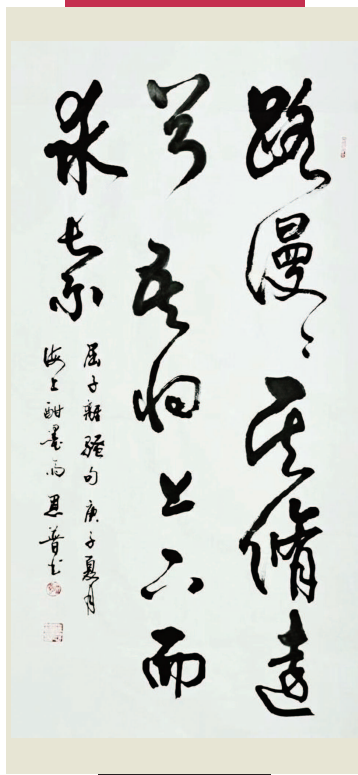 路漫漫其脩遠
兮吾将上下而
求索
屈子離騷句庚子夏月
海上酣墨雨思普书